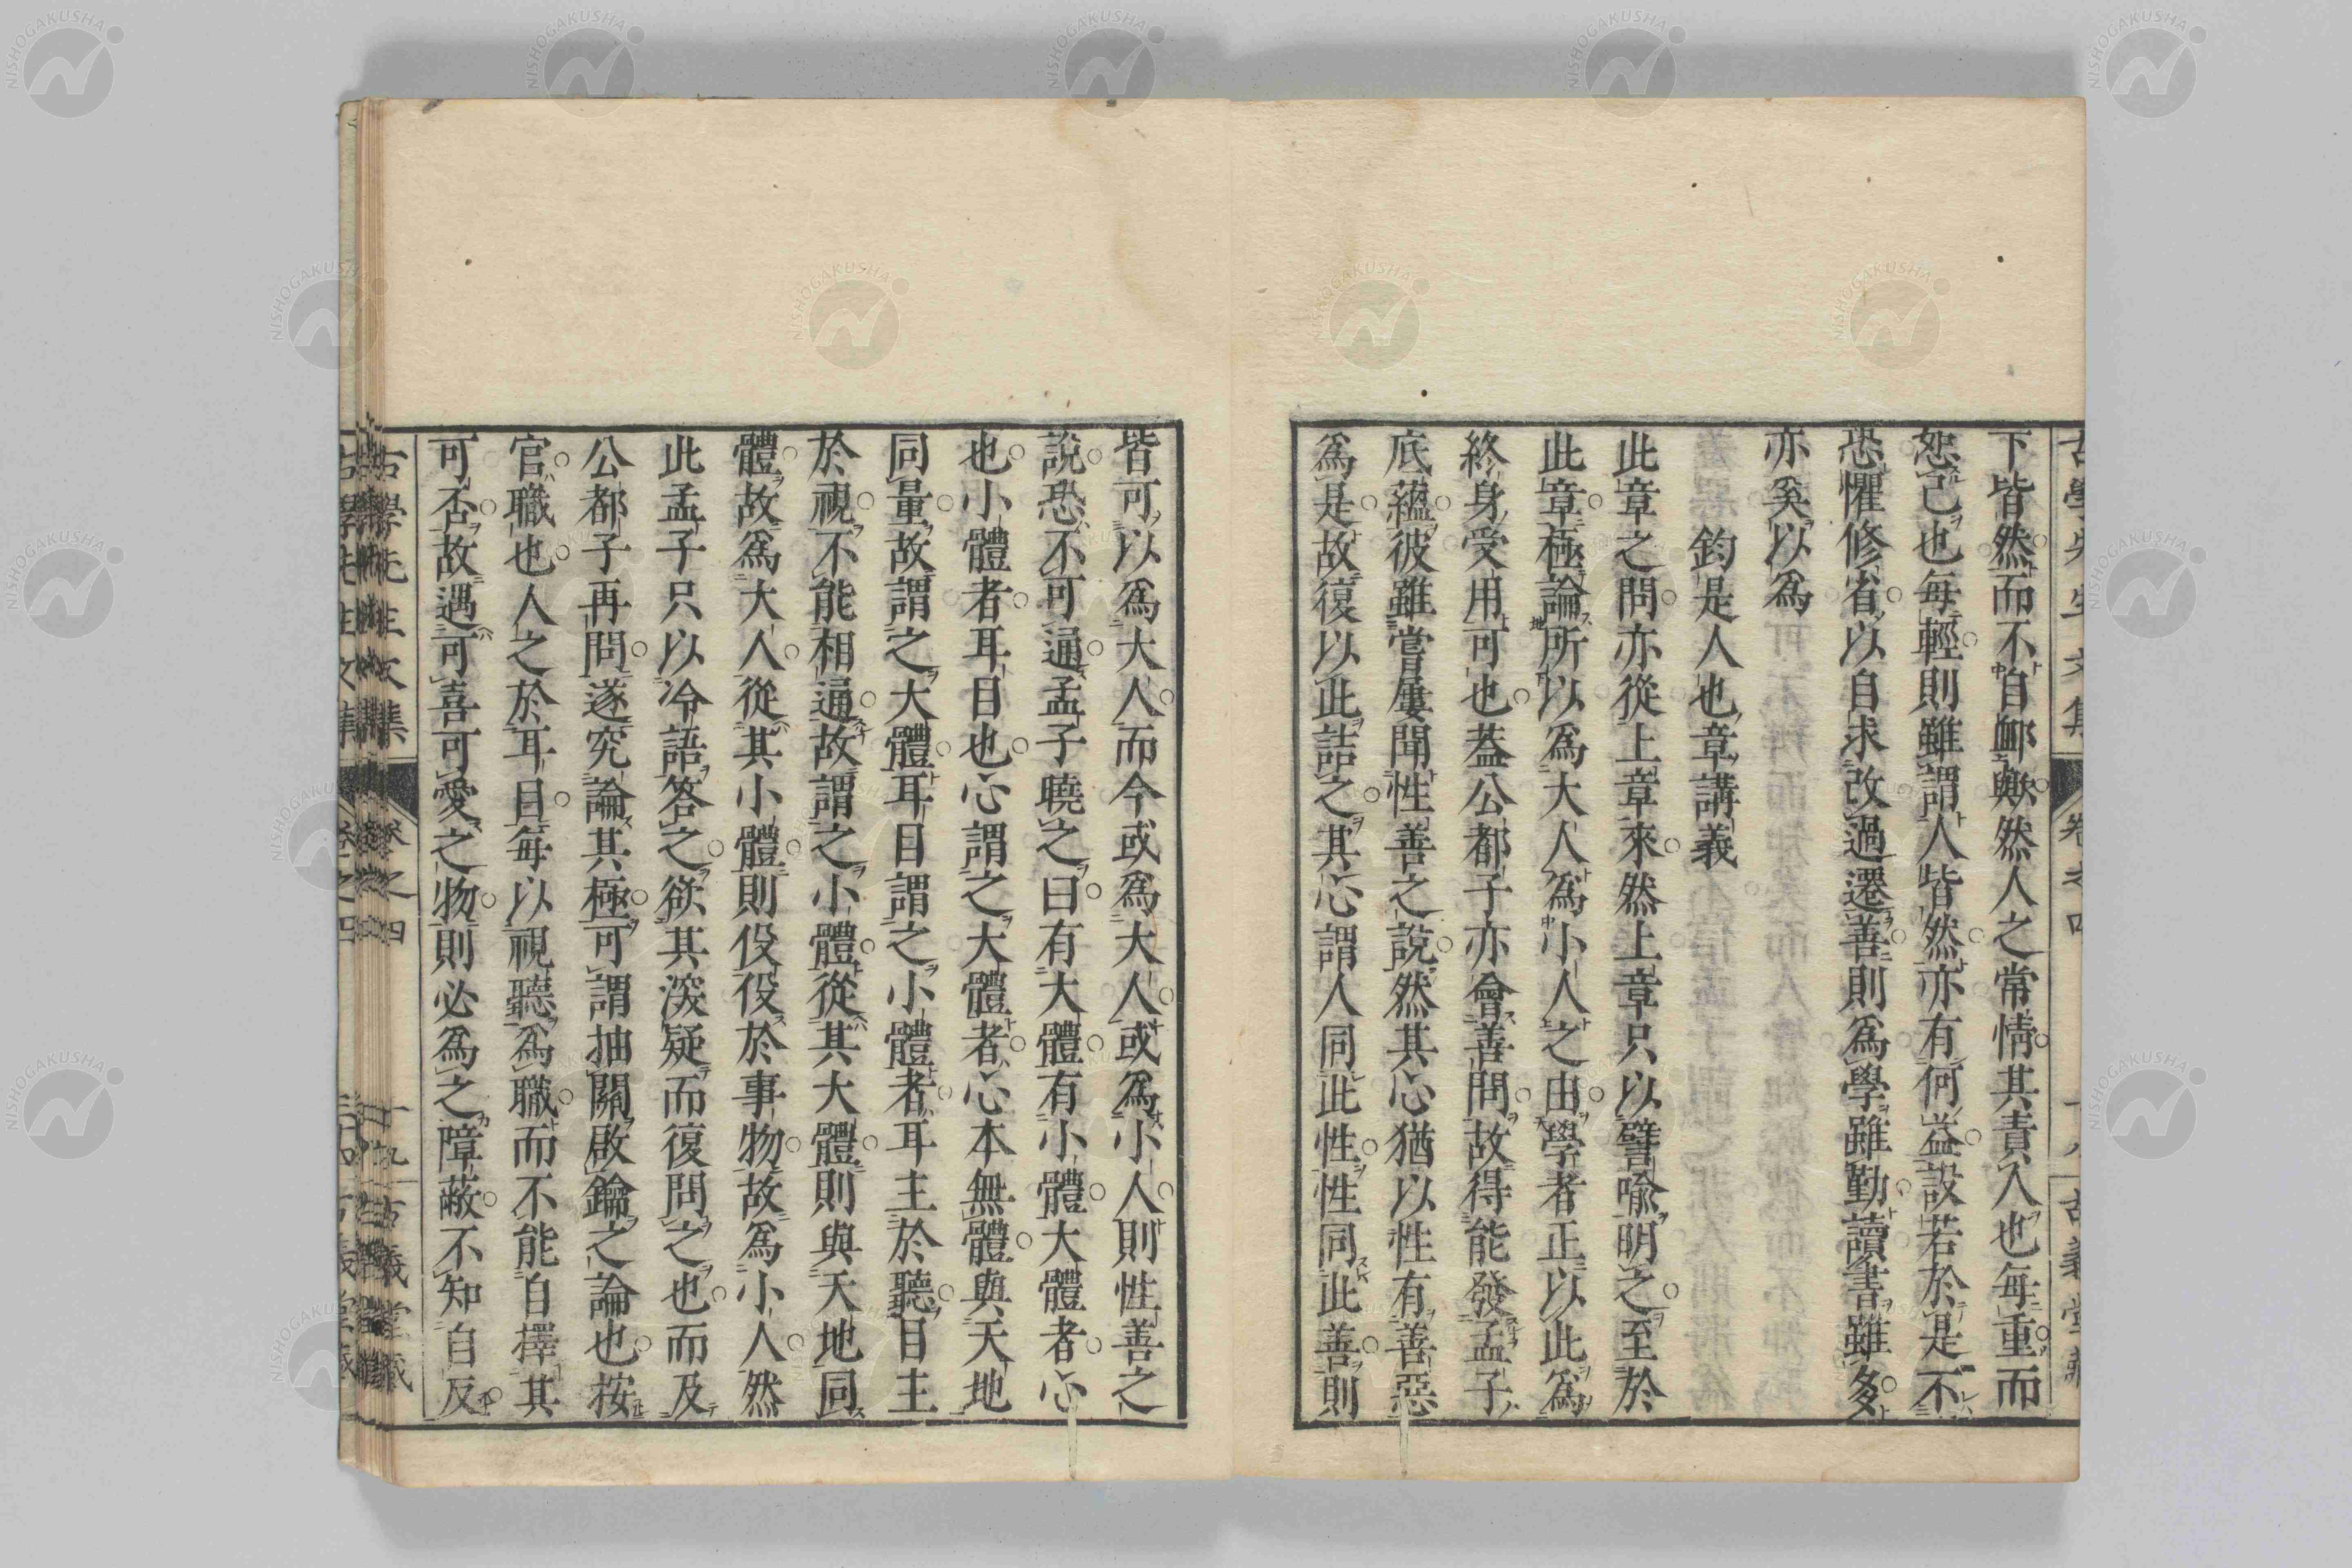 下皆然而不自衈歟然人之常情其責入也每重而
恕己也每輕則雖謂人皆然亦有何益設若於是不
恐懼修省以自求改過遷善則爲學雖勤讀書雖多
亦奚以爲
鈞是人也章講義
此章之問亦從上章來然上章只以譬喩明之至於
此章極論所以爲大人爲小人之由學者正以此爲
終身受用可也蓋公都子亦會善問故得能發孟子
底蘊彼雖嘗屢聞性善之說然其心猶以性有善惡
爲是故復以此詰之其心謂人同此性性同此善則
皆可以爲大人而今或爲大人或爲小人則性善之
說恐不可通孟子曉之曰有大體有小體大體者心
也小體者耳目也心謂之大體者心本無體與天地
同量故謂之大體耳目謂之小體者耳主於聽目主
於視不能相通故謂之小體從其大體則與天地同
體故爲大人從其小體則役役於事物故爲小人然
此孟子只以冷語答之欲其深疑而復問之也而及
公都子再問遂究論其極可謂抽關啟鑰之論也按
官職也人之於耳目每以視聽爲職而不能自擇其
可否故遇可喜可愛之物則必爲之障蔽不知自反
古學先生文集 卷之四 十九 古義堂藏